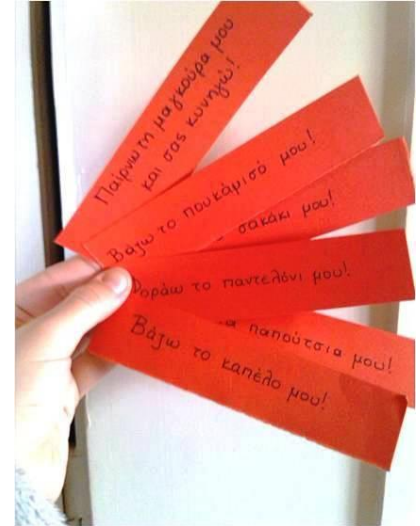 Παίρνω τη μαγκούρα μου
και σας κυνηγώ!
Βάζω το πουκάμισό μου!
σακάκι μου!
Φοράω το παντελόνι μου!
α παπούτσια μου!
Βάζω το καπέλο μου!